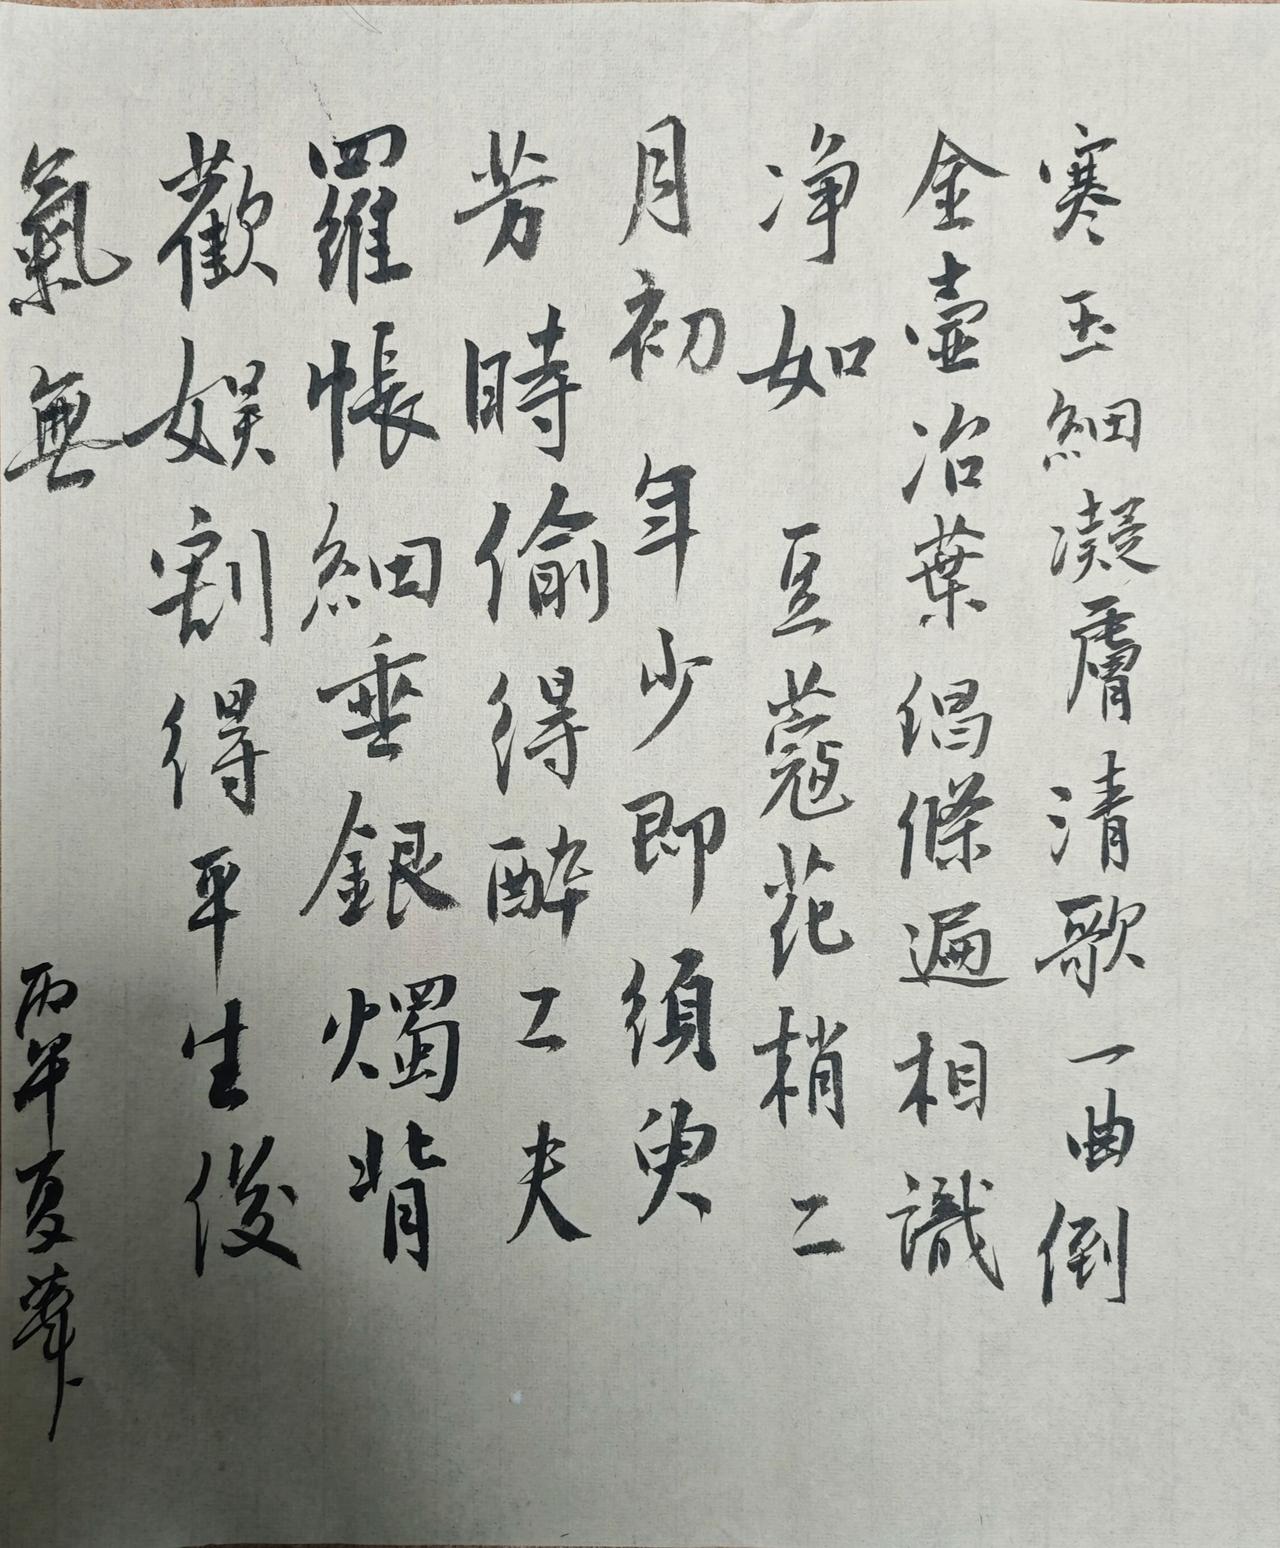 寒玉細凝膚清歌一曲倒
金壺冶葉倡條遍相識
净如豆蔻花梢二
月初年少即須臾
芳時偷得醉工夫
羅帳細垂銀燭背
歡娱割得平生俊
氣無
丙午夏華